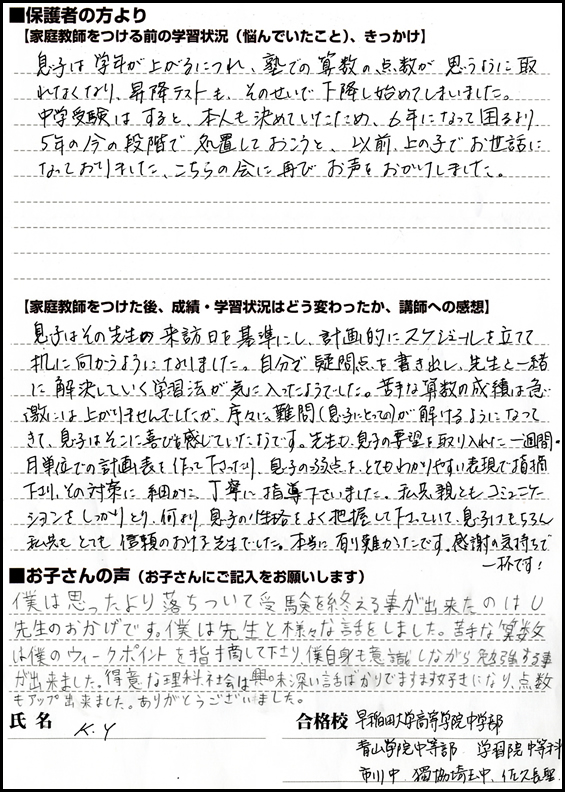 ■保護者の方より
【家庭教師をつける前の学習状況（悩んでいたこと）、きっかけ】
息子は学年が上がるにつれ、塾での算数の点数が思うように取
れなくなり、昇降テストも、そのせいで下降し始めてしまいました。
中学受験はすると、本人も決めていたため、6年になって困るより
5年の今の段階で処置しておこうと、以前、上の子でお世話に
なっておりました、こちらの会に再びお声をおかけしました。
【家庭教師をつけた後、成績・学習状況はどう変わったか、講師への感想】
息子はその先生の来訪日を基準にし、計画的にスケジュールを立てて
机に向かうようになりました。自分で疑問点を書き出し、先生と一緒
に解決していく学習法が気に入ったようでした。苦手な算数の成績は急
激には上がりませんでしたが、序々に、難問(息子にとっての)が解けるようになって
きて、息子はそこに喜びを感じていたようです。先生も、息子の要望を取り入れた一週間・
日単位での計画表を作って下さったり、息子の弱点を、とてもわかりやすい表現で指摘
下さり、その対策に細かに、丁寧に指導下さいました。私共親ともコミュニケー
ションをしっかりとり、何より、息子の性格をよく把握して下さっていて、息子はもちろん
私共もとても信頼のおける先生でした。本当に有り難かったです。感謝の気持ちで
一杯です！
■お子さんの声（お子さんにご記入をお願いします）
僕は思ったより落ちついて受験を終える事が出来たのはU
先生のおかげです。僕は先生と様々な話をしました。苦手な算数
は僕のウィークポイントを指摘して下さり、僕自身も意識しながら勉強する事
が出来ました。得意な理科、社会は興味深い話ばかりでますます好きになり、点数
もアップ出来ました。ありがとうございました。
氏名 K.Y 合格校 早稲田大学高等学院中学部
青山学院中等部 学習院中等科
市川中 獨協埼玉中、佐久長聖